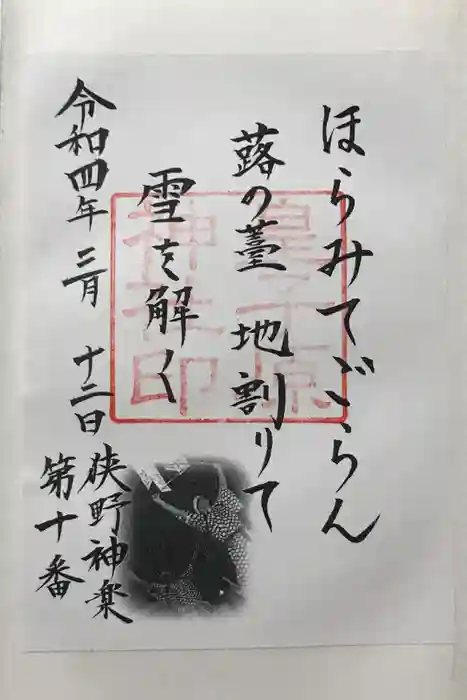 ほらみてごらん
蕗の薹 地割りて
雪を解く
令和四年 三月 十二日
狭野神楽
第十番
皇子原
神社印